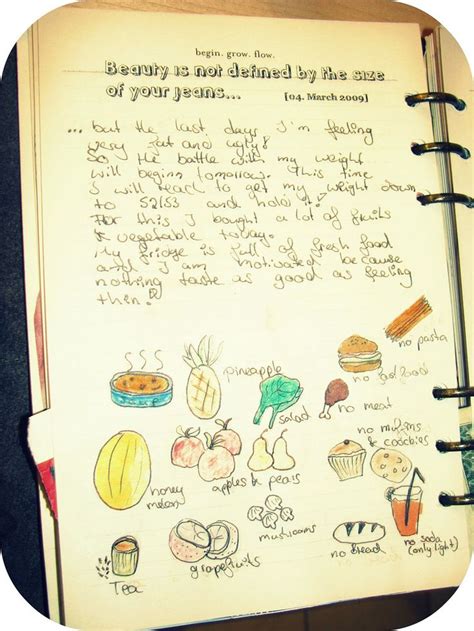 begin. grow. flow.
Beauty is not defined by the size
of your jeans... [04. March 2009]
... but the last days I'm feeling
very fat and ugly!
So the battle with my weight
will begin tomorrow. This time
I will reach to get my weight down
to 52/53 and hold it!
For this I bought a lot of fruits
& vegetable today.
My fridge is full of fresh food
and I am motivated because
nothing taste as good as feeling
thin!
no pasta
pineapple
no fast food
salad
no meat
no muffins
& coockies
honey
melon
apples & pears
mushrooms
no bread
no soda
(only light)
grapefruits
Tea